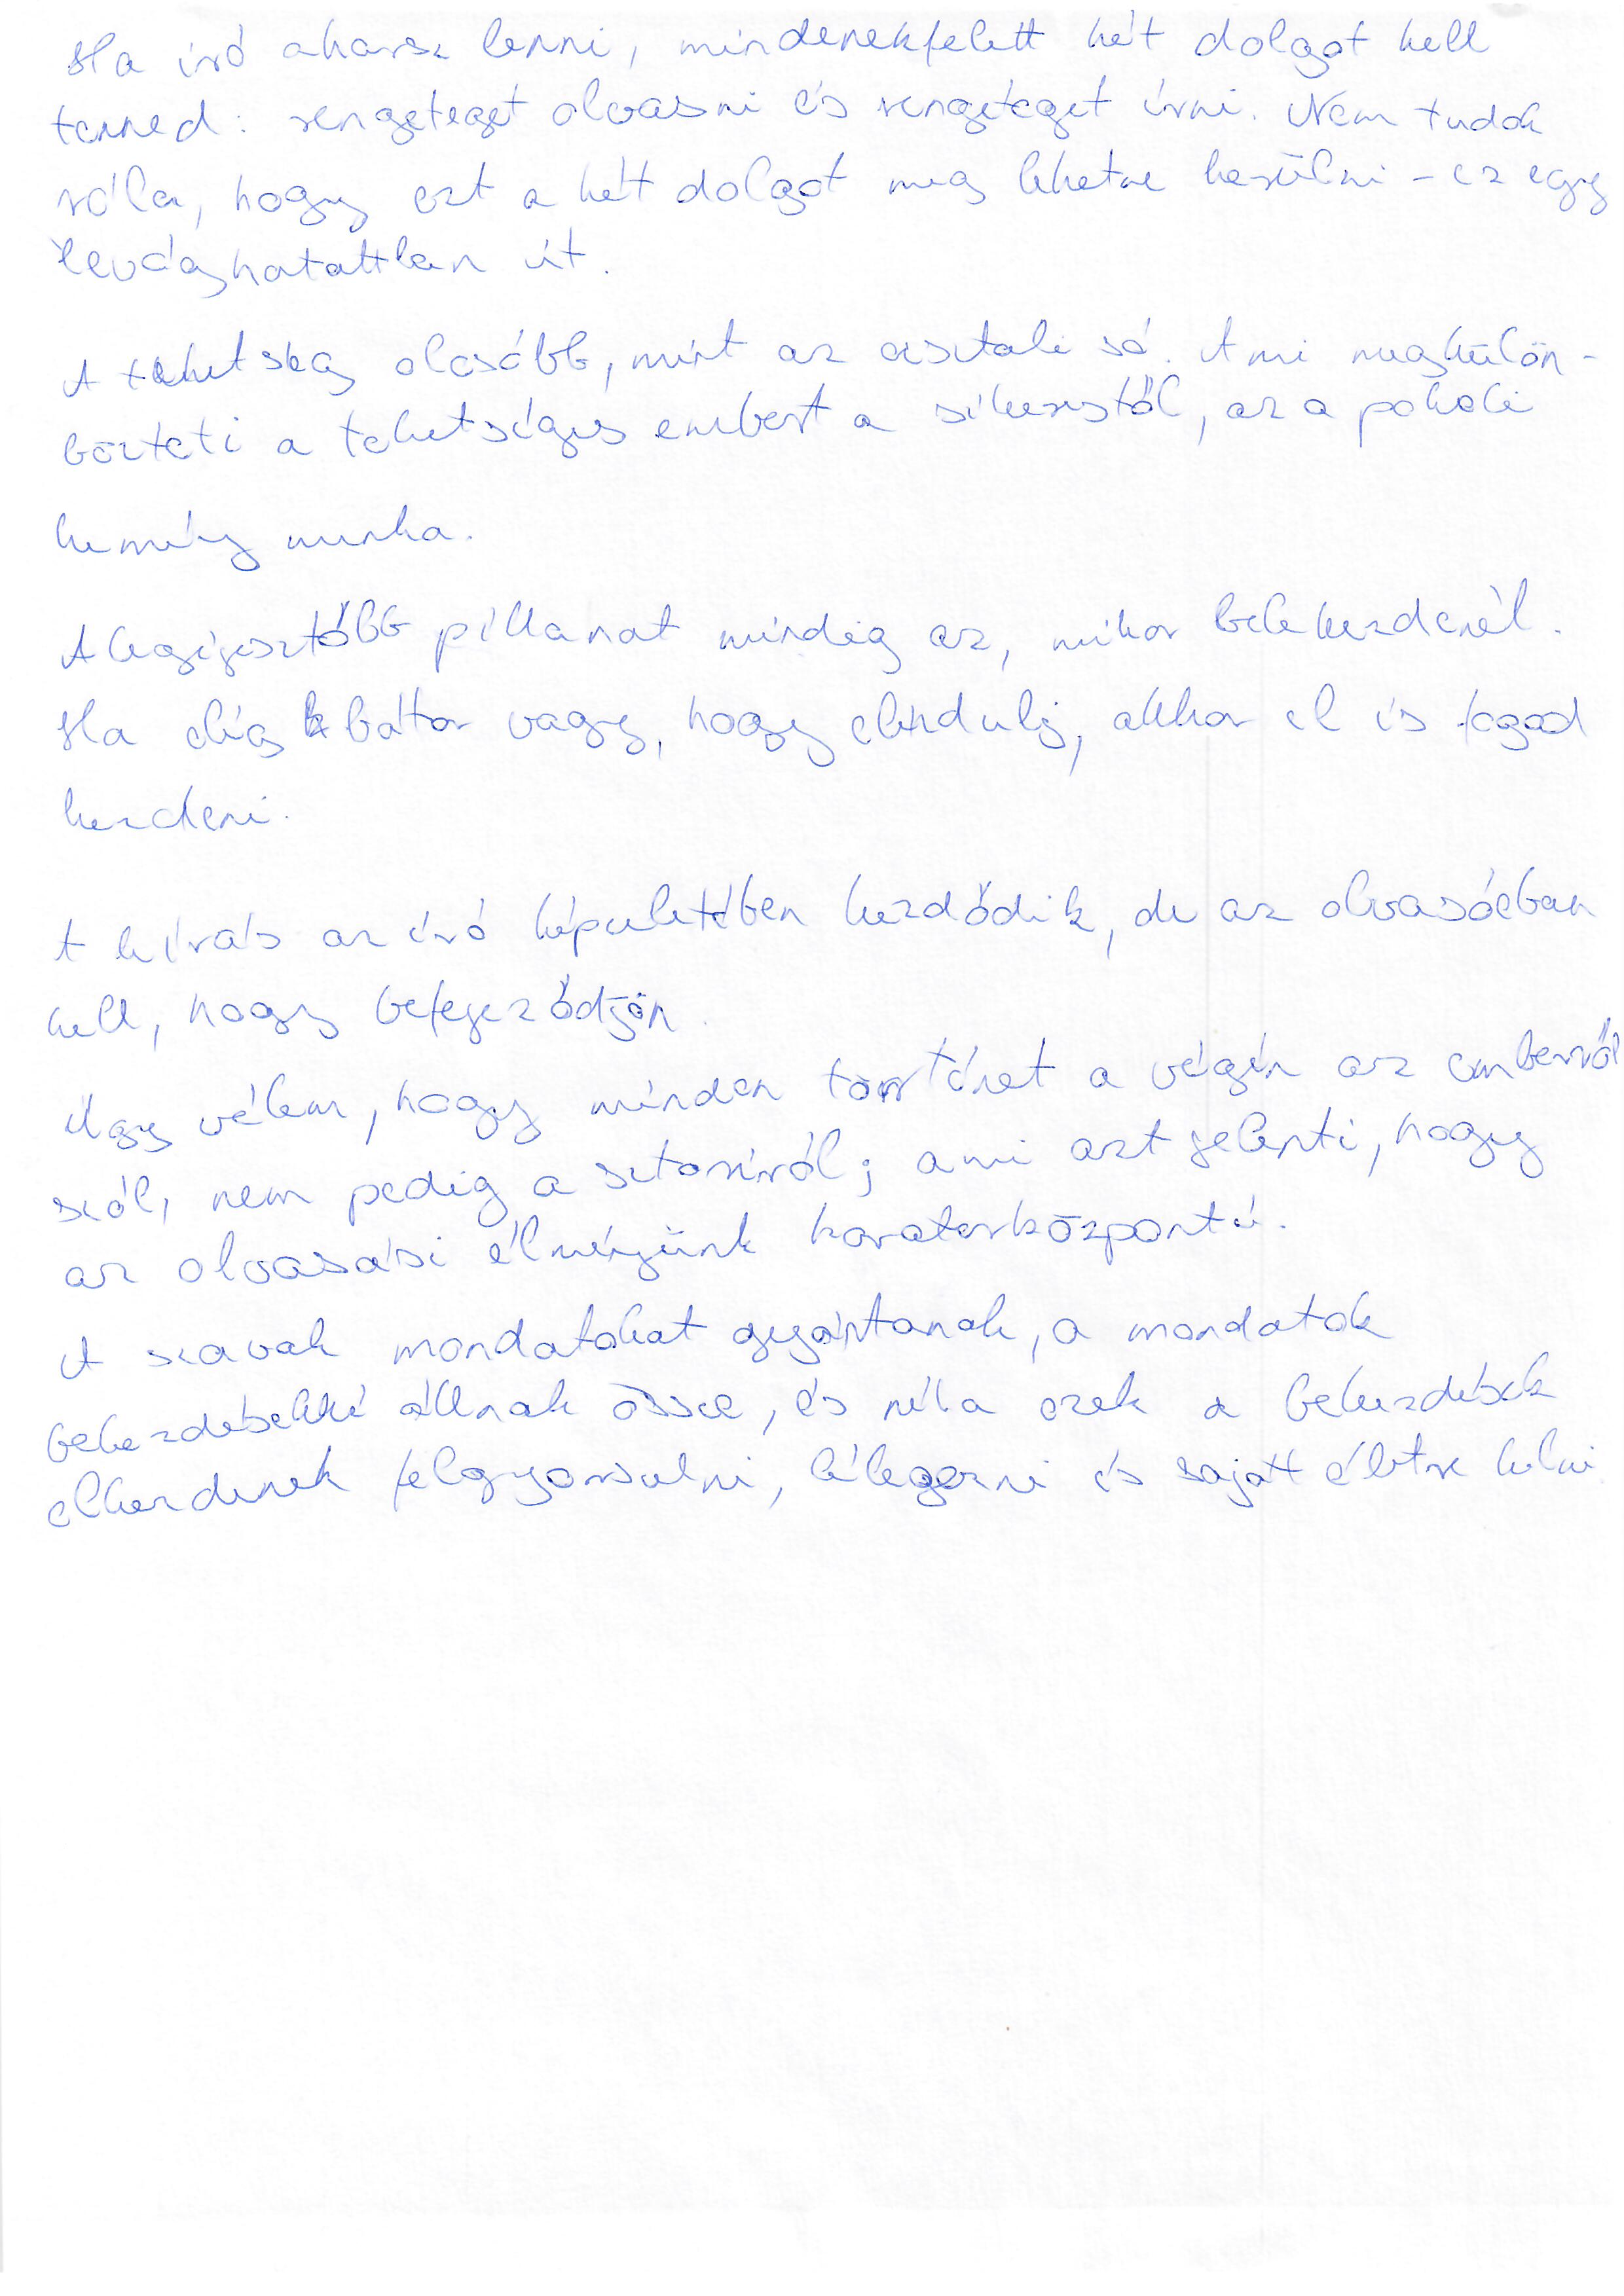 Ha író akarsz lenni, mindenekfelett két dolgot kell
tenned: rengeteget olvasni és rengeteget írni. Nem tudok
róla, hogy ezt a két dolgot meg lehetne kerülni - ez egy
levághatatlan út.
A tehetség olcsóbb, mint az asztali só. Ami megkülön-
bözteti a tehetséges embert a sikerestől, az a pokoli
kemény munka.
A legijesztőbb pillanat mindig az, mikor belekezdenél.
Ha elég bátor vagy, hogy elindulj, akkor el is fogod
kezdeni.
A leírás az író képzeletében kezdődik, de az olvasóéban
kell, hogy befejeződjön.
Úgy vélem, hogy minden történet a végén az emberről
szól, nem pedig a sztoriról; ami azt jelenti, hogy
az olvasási élményünk karakterközpontú.
A szavak mondatokat gyártanak, a mondatok
bekezdésekké állnak össze, és néha ezek a bekezdések
elkezdenek felgyorsulni, lélegezni és saját életre kelni